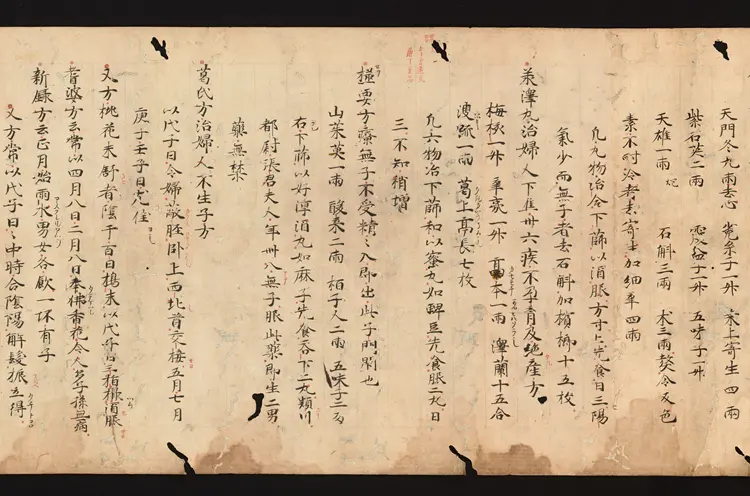 天門冬九兩去心 菟糸子一升 桒上寄生四兩
紫石英二兩 覆盆子一升 五味子一升
天雄一兩炮 石斛三兩 朮三兩熬令反色
素不耐冷者去寄生加細辛四兩
凡九物治合下篩以酒服方寸匕先食日三陽
氣少而無子者去石斛加檳榔十五枚
承澤丸治婦人下焦卅六疾不孕育及絶產方
梅核一升 辛夷一升 藁本一兩 澤蘭十五合
溲疏一兩 葛上亭長七枚
凡六物治下篩和以蜜丸如豆先食服二丸日
三不知稍增
極要方療無子不受精々入即出此子門閉也
山茱萸一兩 酸棗二兩 柏子人二兩 五味子二分
右下篩以好淳酒丸如麻子先食呑下二丸類川
都尉張君夫人年卌八無子服此藥即生二男
藥無禁
葛氏方治婦人不生子方
以戊子日令婦蔽脛卧上西北首交接五月七月
庚子壬子日尤佳
又方桃花未舒者陰干百日搗末以戊子日三指撮酒服
耆婆方云常以四月八日二月八日奉佛香花令人多子孫無病
新錄方云正月始雨水男女各飲一坏有子
又方常以戊子日日中時合陰陽解髮振立得